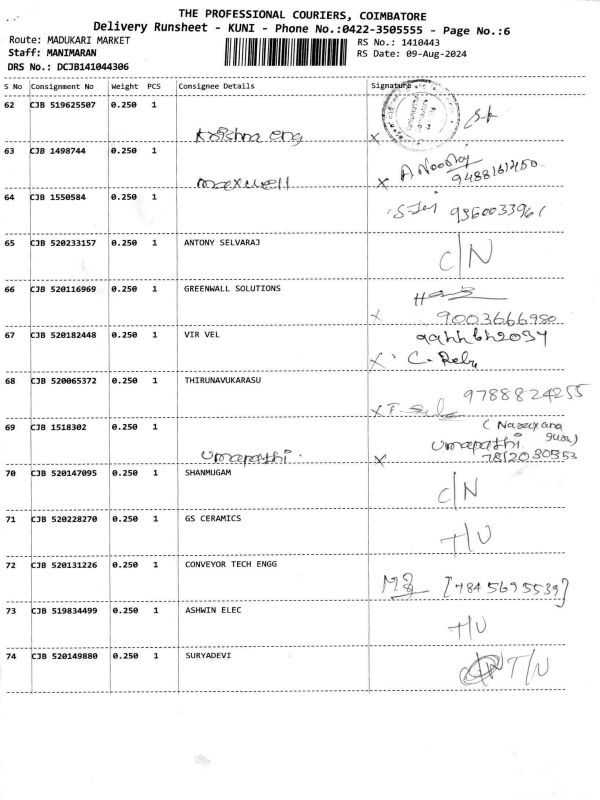 THE PROFESSIONAL COURIERS, COIMBATORE
Delivery Runsheet - KUNI - Phone No.:0422-3505555 - Page No.:6
Route: MADUKARI MARKET RS No.: 1410443
Staff: MANIMARAN RS Date: 09-Aug-2024
DRS No.: DCJB141044306
S No Consignment No Weight PCS Consignee Details Signature
62 CJB 519625507 0.250 1
Krishna eng X
63 CJB 1498744 0.250 1
maxwell X 9488161450
64 CJB 1550584 0.250 1
9360033961
65 CJB 520233157 0.250 1 ANTONY SELVARAJ
C/N
66 CJB 520116969 0.250 1 GREENWALL SOLUTIONS
X 9003666980
67 CJB 520182448 0.250 1 VIR VEL
X C.
68 CJB 520065372 0.250 1 THIRUNAVUKARASU
9788824255
X
69 CJB 1518302 0.250 1
Umapathi. X Umapathi
7812030553
70 CJB 520147095 0.250 1 SHANMUGAM
C/N
71 CJB 520228270 0.250 1 GS CERAMICS
T/U
72 CJB 520131226 0.250 1 CONVEYOR TECH ENGG
[7845695539]
73 CJB 519834499 0.250 1 ASHWIN ELEC
T/U
74 CJB 520149880 0.250 1 SURYADEVI
T/N